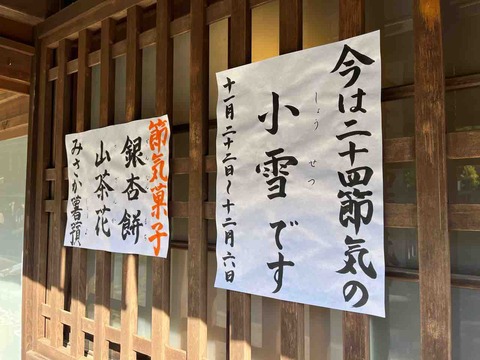 今は二十四節気の
小雪です
しょうせつ
十一月二十二日〜十二月六日
節気菓子
銀杏餅
山茶花
みさか薯蕷